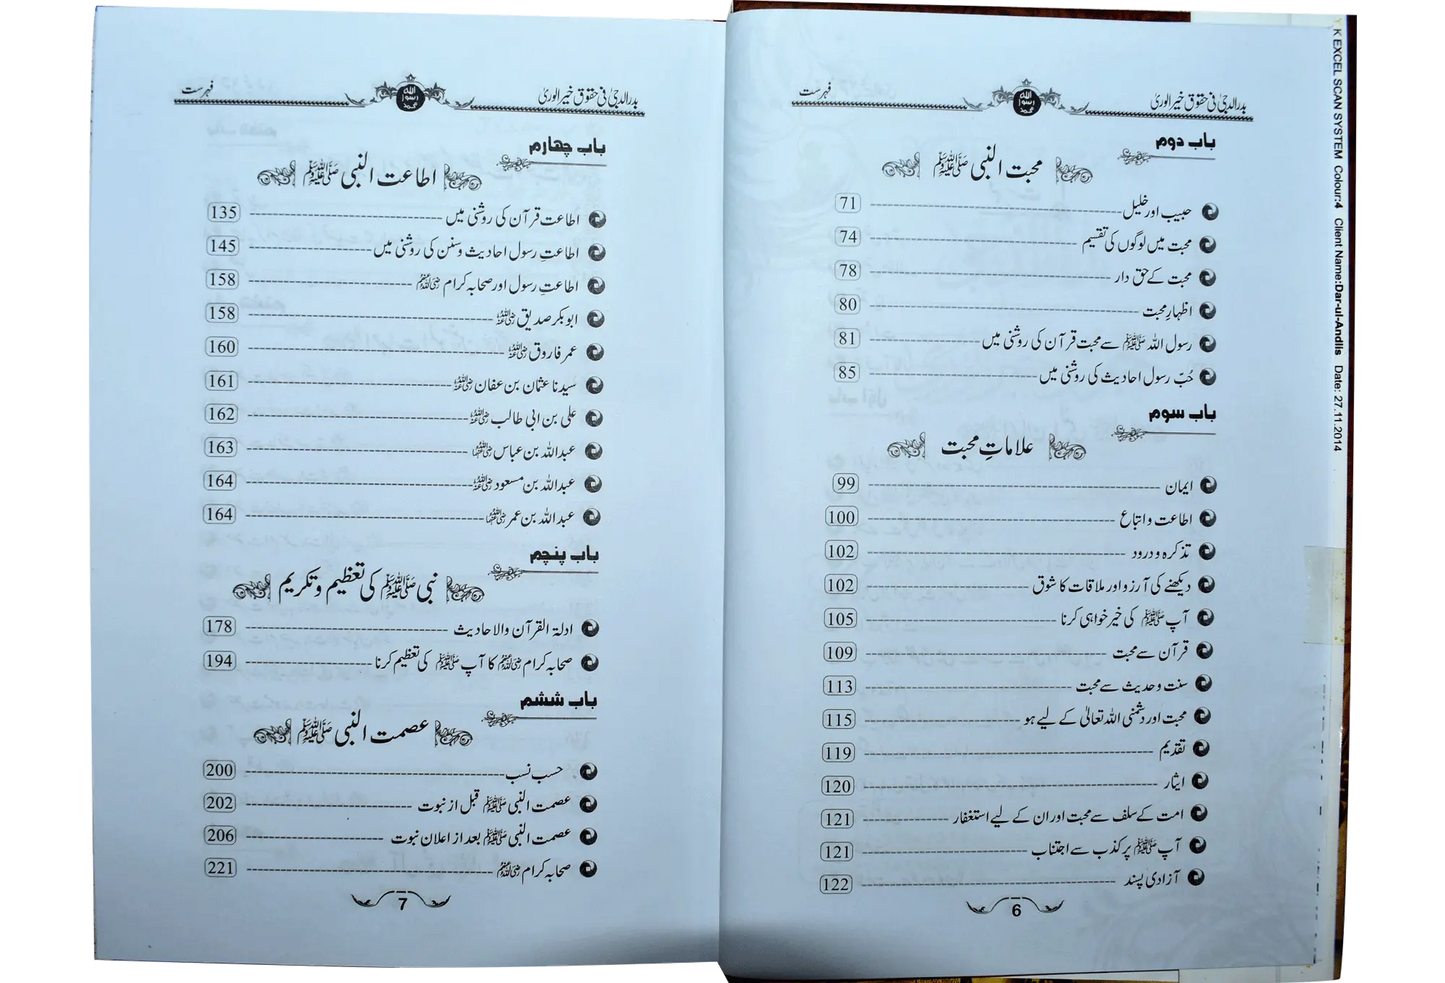 بدرالدجیٰ فی حقوق خیرالوریٰ
فہرست
باب دوم
محبت النبی ﷺ
حبیب اور خلیل 71
محبت میں لوگوں کی تقسیم 74
محبت کے حق دار 78
اظہارِ محبت 80
رسول اللہ ﷺ سے محبت قرآن کی روشنی میں 81
حُبّ رسول احادیث کی روشنی میں 85
باب سوم
علاماتِ محبت
ایمان 99
اطاعت و اتباع 100
تذکرہ و درود 102
دیکھنے کی آرزو اور ملاقات کا شوق 102
آپ ﷺ کی خیر خواہی کرنا 105
قرآن سے محبت 109
سنت و حدیث سے محبت 113
محبت اور دشمنی اللہ تعالیٰ کے لیے ہو 115
تقدیم 119
ایثار 120
امت کے سلف سے محبت اور ان کے لیے استغفار 121
آپ ﷺ پر کذب سے اجتناب 121
آزادی پسند 122
6
بدرالدجیٰ فی حقوق خیرالوریٰ
فہرست
باب چہارم
اطاعت النبی ﷺ
اطاعت قرآن کی روشنی میں 135
اطاعتِ رسول احادیث و سنن کی روشنی میں 145
اطاعتِ رسول اور صحابہ کرام رضی اللہ عنہم 158
ابوبکر صدیق رضی اللہ عنہ 158
عمر فاروق رضی اللہ عنہ 160
سیدنا عثمان بن عفان رضی اللہ عنہ 161
علی بن ابی طالب رضی اللہ عنہ 162
عبداللہ بن عباس رضی اللہ عنہما 163
عبداللہ بن مسعود رضی اللہ عنہ 164
عبداللہ بن عمر رضی اللہ عنہما 164
باب پنچم
نبی ﷺ کی تعظیم و تکریم
ادلۃ القرآن والاحادیث 178
صحابہ کرام رضی اللہ عنہم کا آپ ﷺ کی تعظیم کرنا 194
باب ششم
عصمت النبی ﷺ
حسب نسب 200
عصمت النبی ﷺ قبل از نبوت 202
عصمت النبی ﷺ بعد از اعلان نبوت 206
صحابہ کرام رضی اللہ عنہم 221
7
K EXCEL SCAN SYSTEM Colour:4 Client Name:Dar-ul-Andlis Date: 27.11.2014